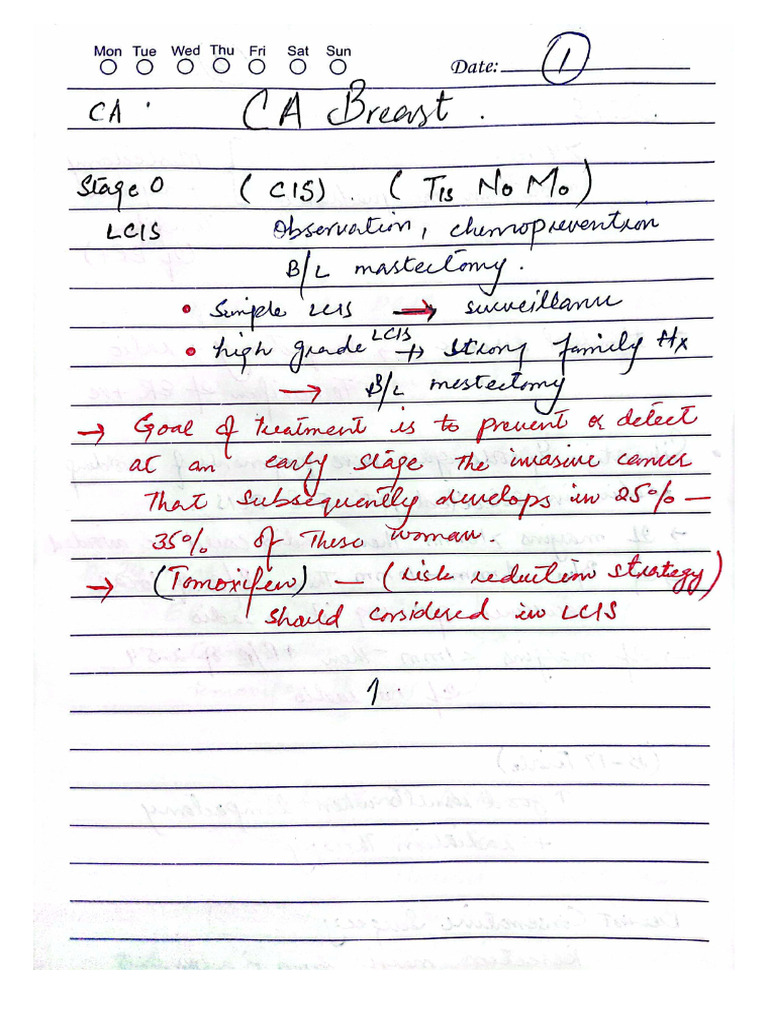 Mon Tue Wed Thu Fri Sat Sun
Date: 1
CA . CA Breast .
Stage 0 (CIS) . (TIS N0 M0)
LCIS Observation, chemoprevention
B/L mastectomy.
• Simple LCIS → surveillance
• high grade LCIS + strong family Hx
→ B/L mestectomy
→ Goal of treatment is to prevent or detect
at an early stage the invasive cancer
That subsequently develops in 25% –
35% of These woman
→ (Tomoxifen) – (risk reduction strategy)
should considered in LCIS
1.